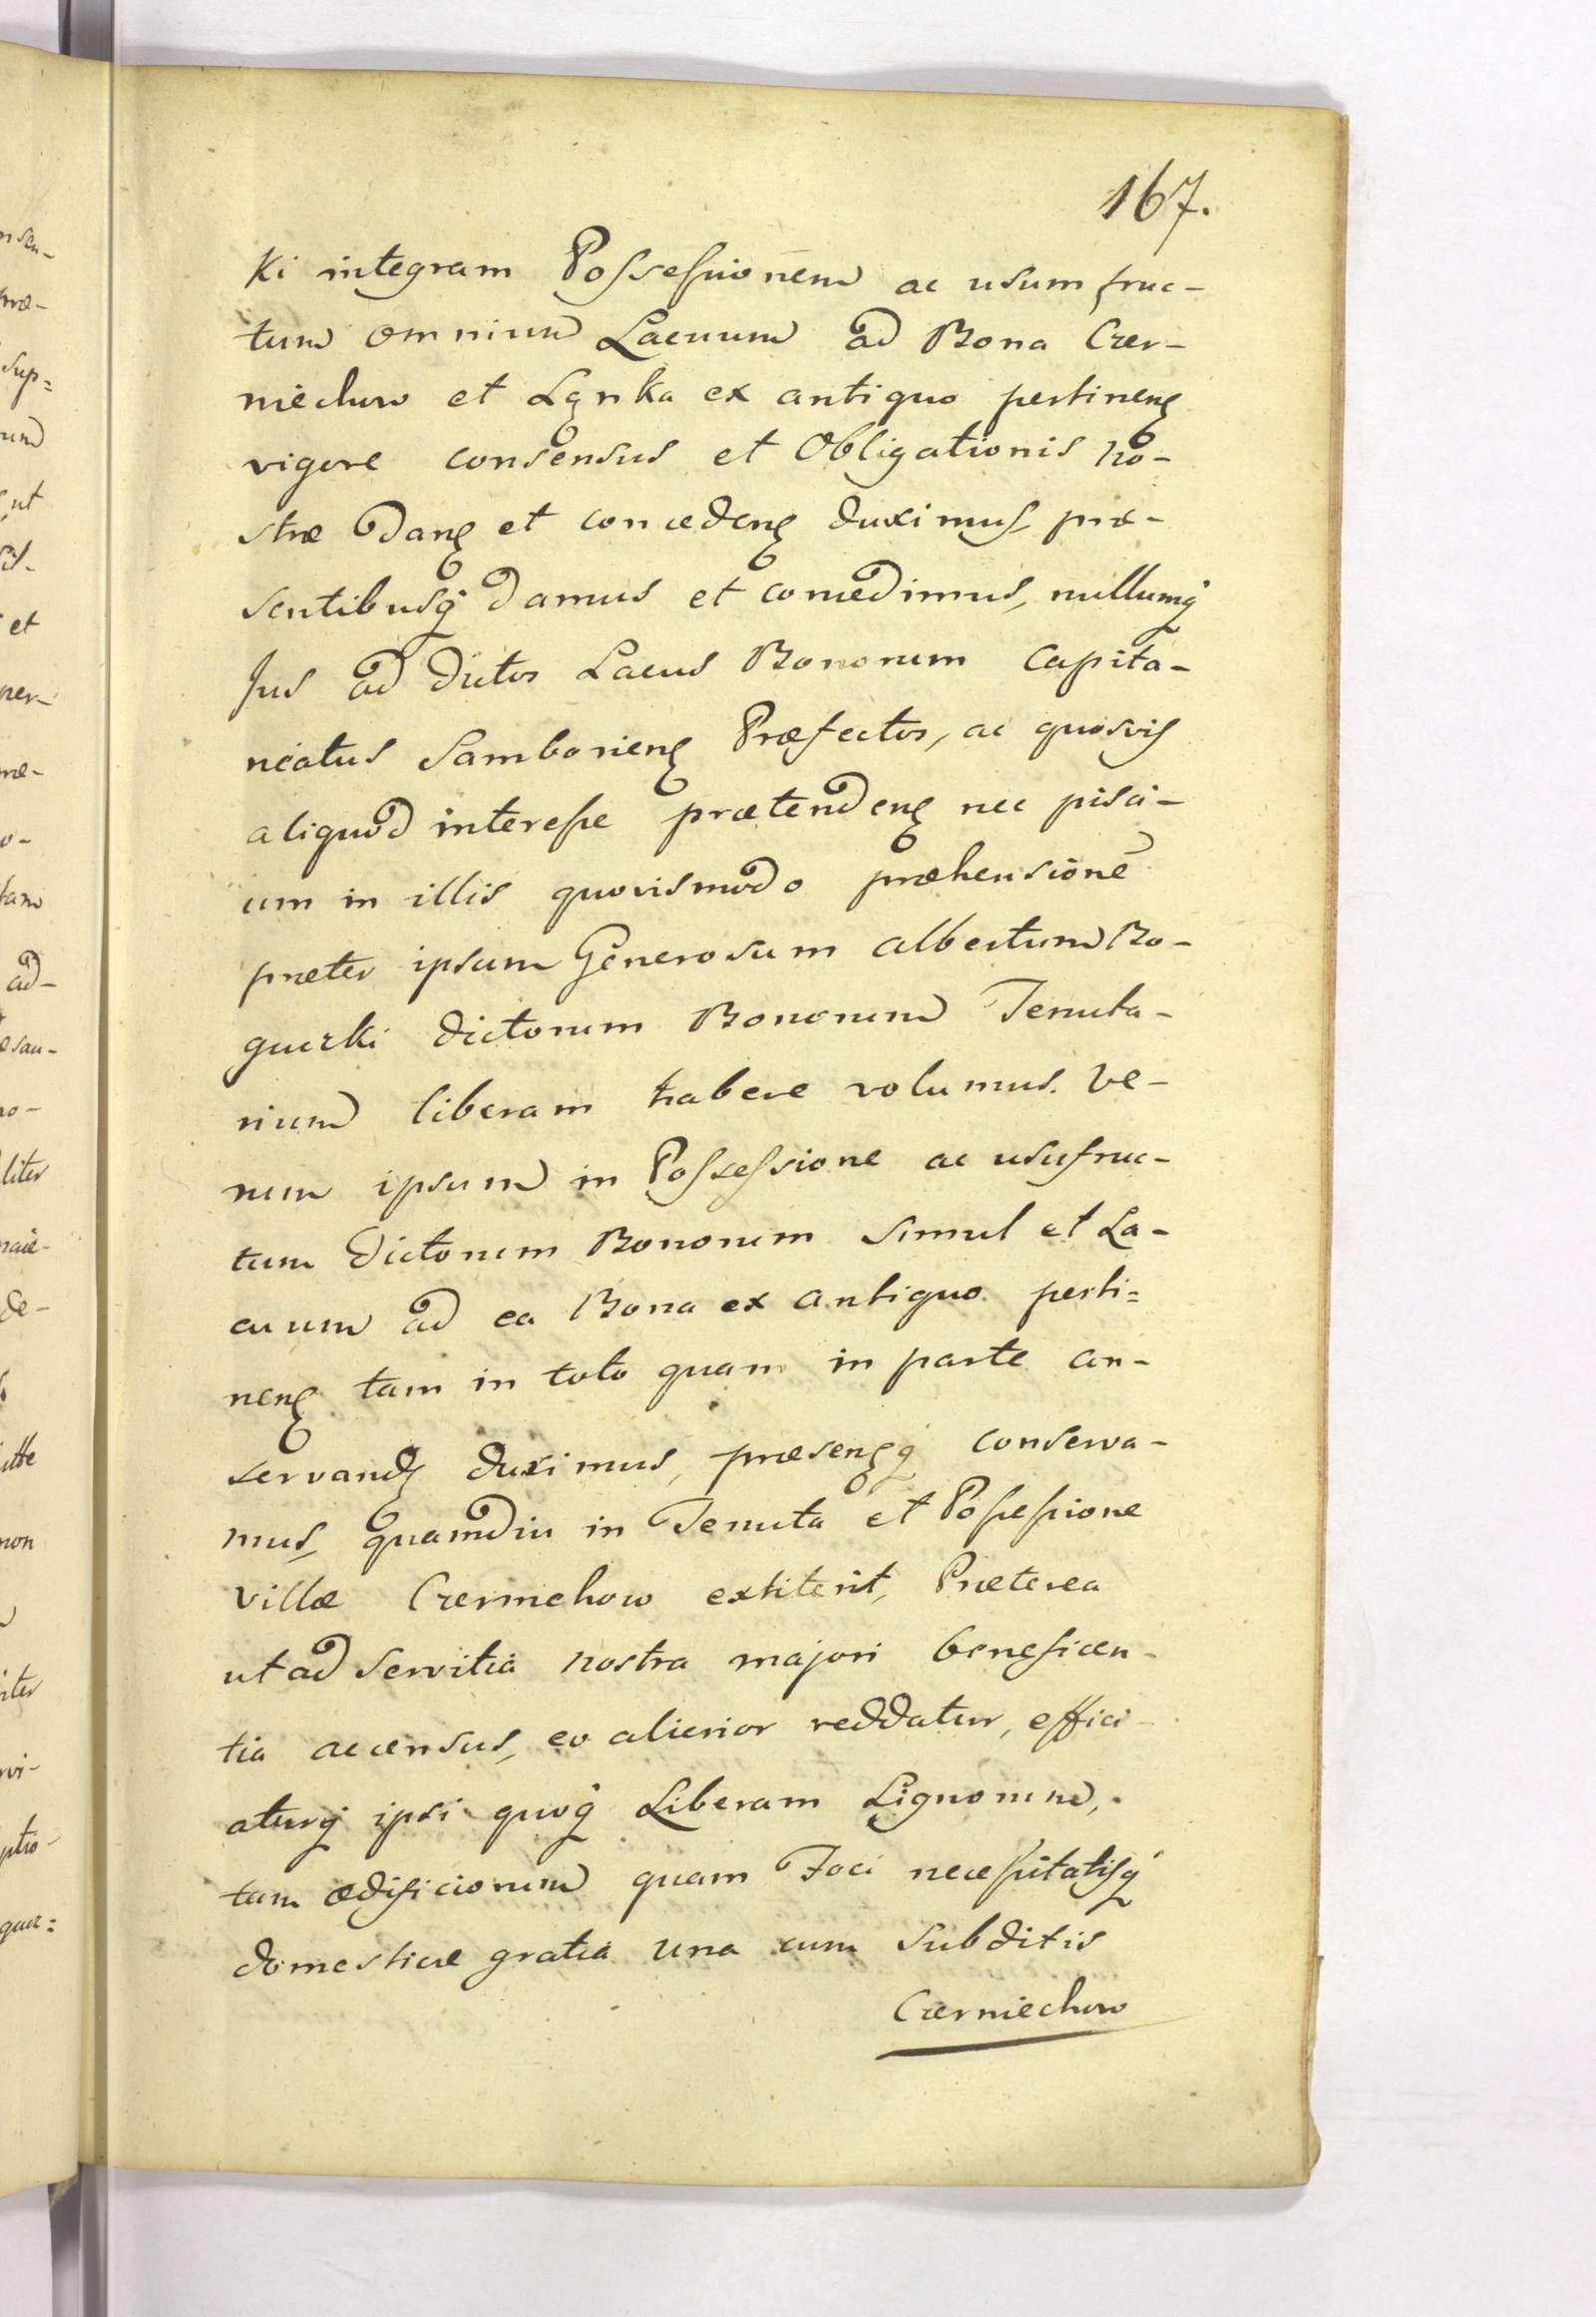 167.
Ki integram Possessionem ac usumfruc-
tum omnium Lacuum ad Bona Czer-
niechow et Łąnka ex antiquo pertinenɇ
vigore consensus et Obligationis no-
stræ Danɇ et concedenɇ duximus, præ-
sentibusq́ damus et concedimus, nullumq́
Jus ad dictos Lacus Bonorum Capita-
neatus Samborienɇ Præfectos, ac quosvis
aliquod interesse prætendenɇ nec pisci-
um in illis quovismodo præhensionē
præter ipsum Generosum Albertum Bo-
guczki dictorum Bonorum Tenuta-
rium liberam habere volumus. Ve-
rum ipsum in Possessione ac usufruc-
tum Dictorum Bonorum simul et La-
cuum ad ea Bona ex antiquo perti=
nenɇ tam in toto quam in parte con-
servandɇ duximus, præsenɇq́ conserva-
mus, quamdiu in Tenuta et Possessione
Villæ Czerniehow extiterit, Præterea
ut ad Servitia nostra majori beneficen-
tia accensus, eo alicrior reddatur, effici-
aturq́ ipsi quoq́ Liberam Lignorum,
tam ædificiorum quam Foci necessitatisq́
domesticæ gratia una cum Subditis
Czerniechow